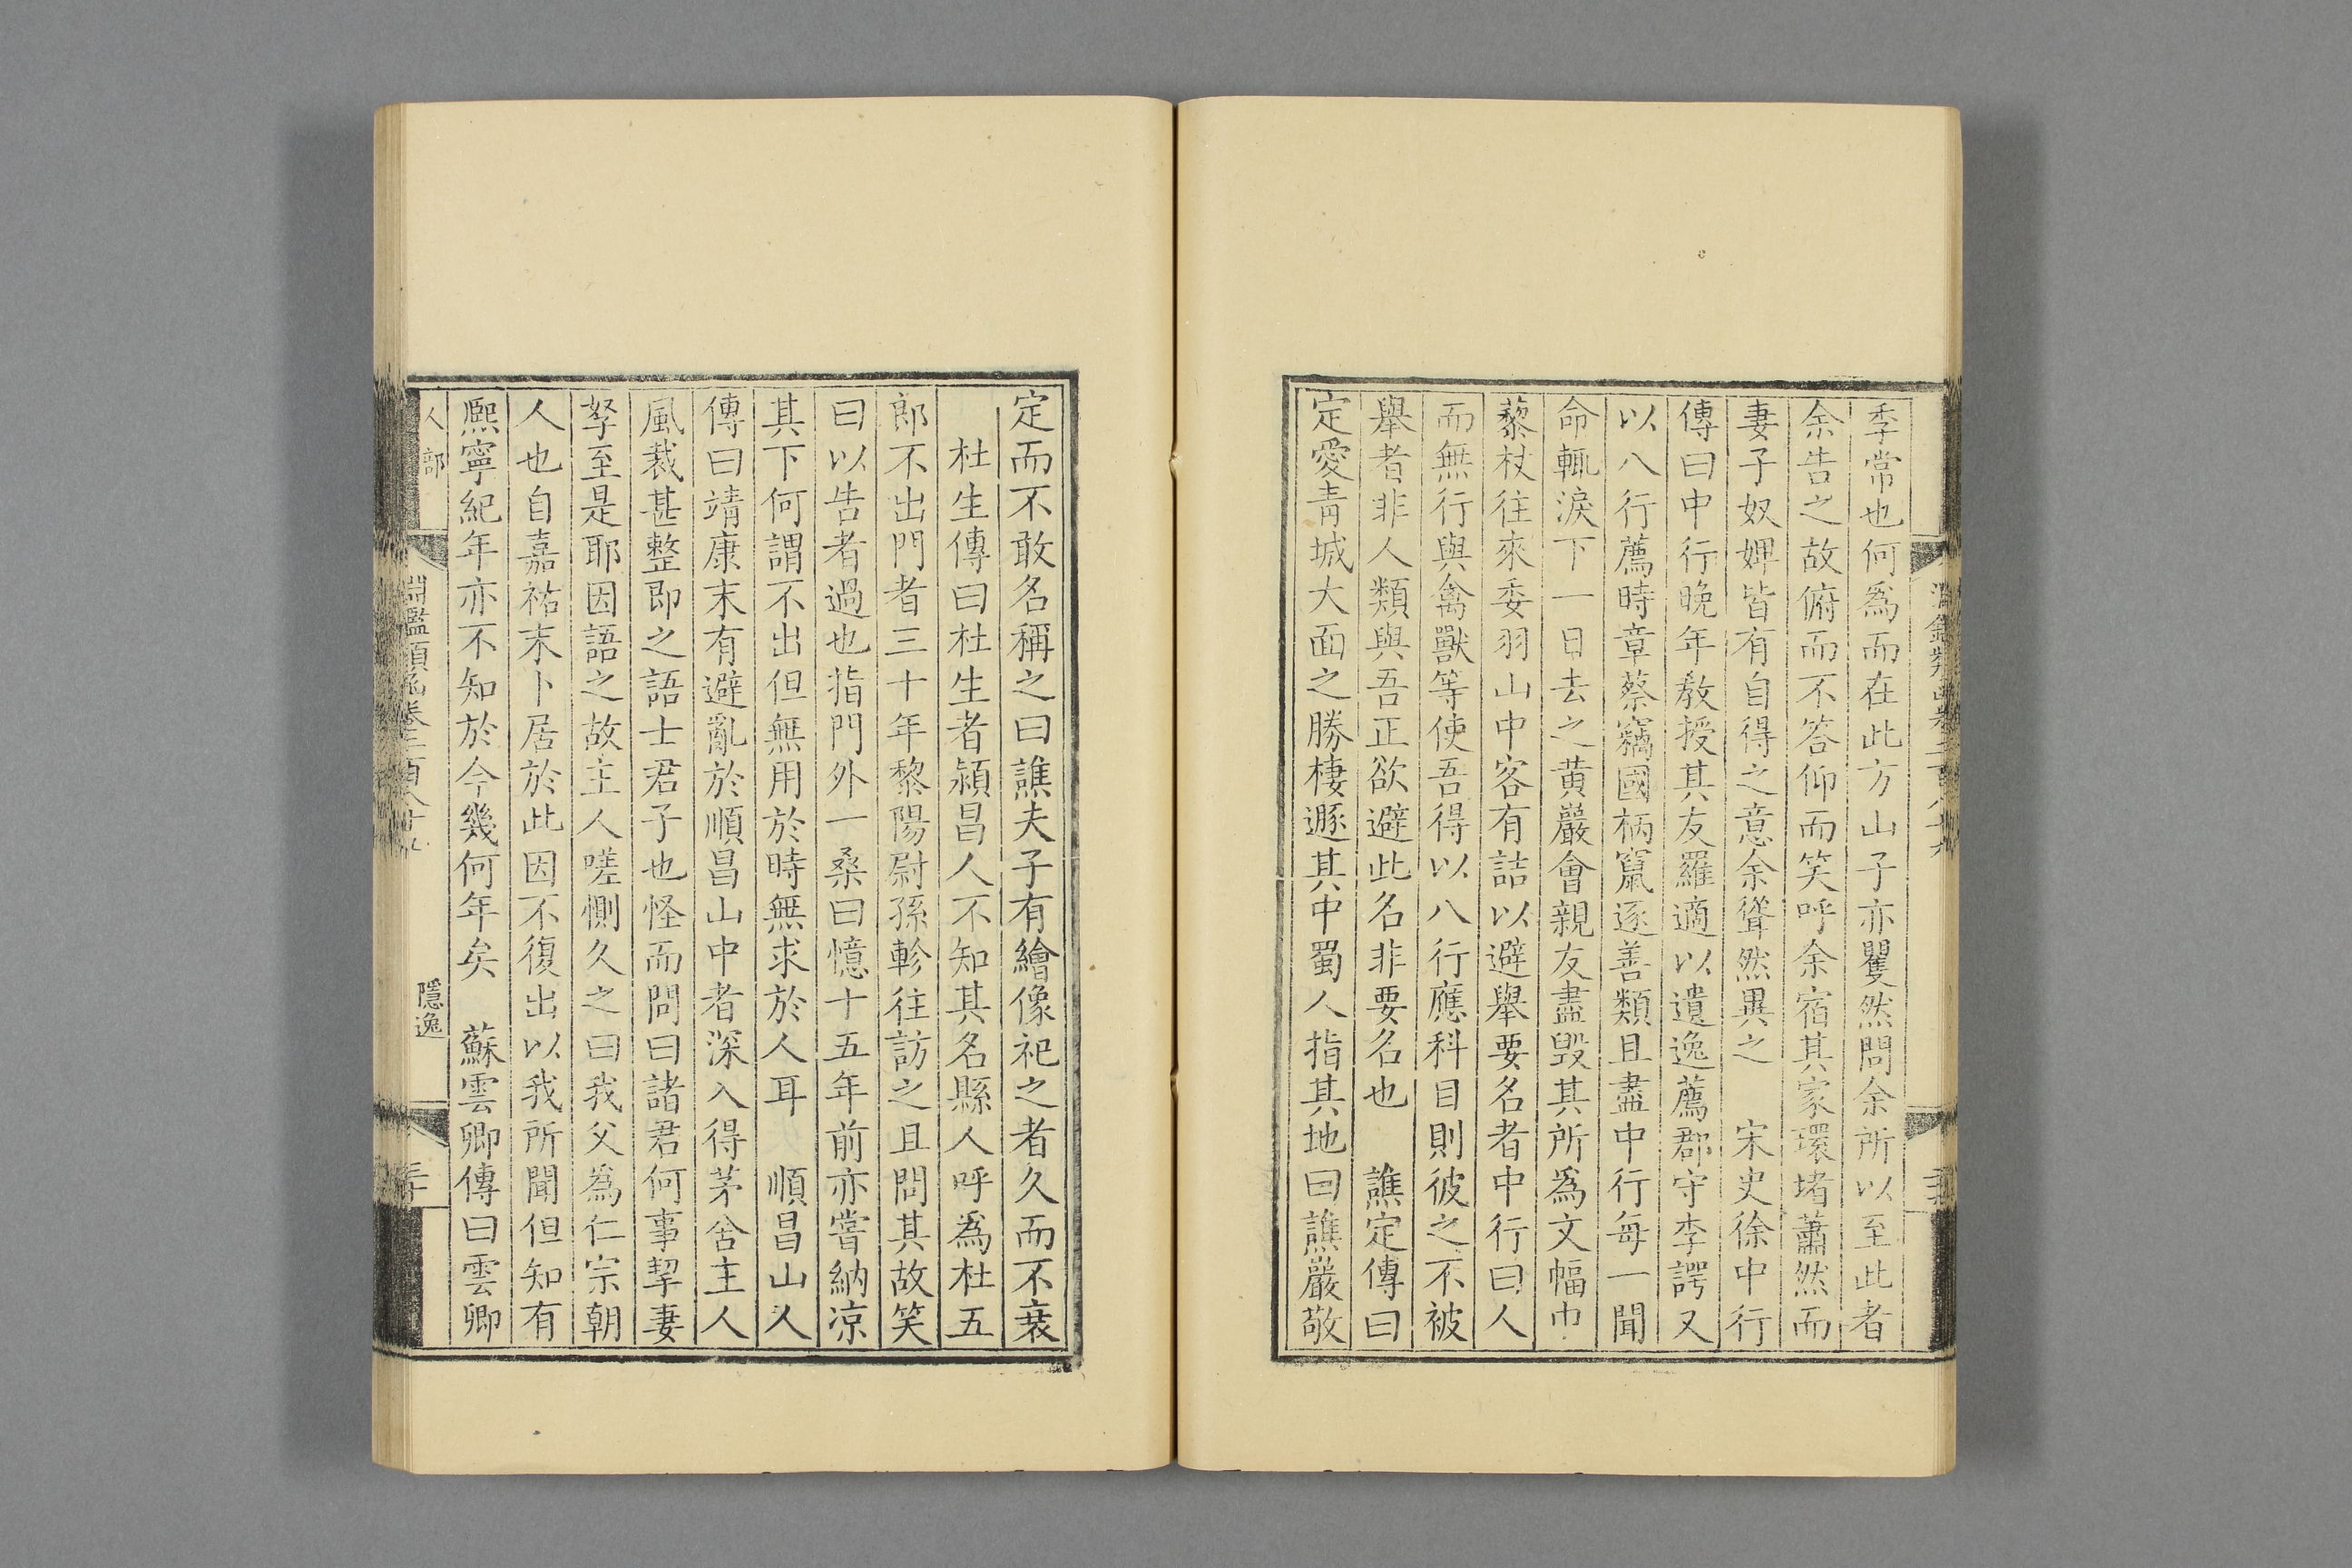 季常也何爲而在此方山子亦矍然問余所以至此者
余告之故俯而不答仰而笑呼余宿其家環堵蕭然而
妻子奴婢皆有自得之意余聳然異之　宋史徐中行
傳曰中行晚年教授其友羅適以遺逸薦郡守李諤又
以八行薦時章蔡竊國柄竄逐善類且盡中行每一聞
命輒淚下一日去之黄巖會親友盡毀其所爲文幅巾
藜杖往來委羽山中客有詰以避舉要名者中行曰人
而無行與禽獸等使吾得以八行應科目則彼之不被
舉者非人類與吾正欲避此名非要名也　譙定傳曰
定愛青城大面之勝棲遯其中蜀人指其地曰譙巖敬
定而不敢名稱之曰譙夫子有繪像祀之者久而不衰
杜生傳曰杜生者潁昌人不知其名縣人呼爲杜五
郎不出門者三十年黎陽尉孫軫往訪之且問其故笑
曰以告者過也指門外一桑曰憶十五年前亦嘗納凉
其下何謂不出但無用於時無求於人耳　順昌山人
傳曰靖康末有避亂於順昌山中者深入得茅舍主人
風裁甚整即之語士君子也怪而問曰諸君何事挈妻
孥至是耶因語之故主人嗟惻久之曰我父爲仁宗朝
人也自嘉祐末卜居於此因不復出以我所聞但知有
熙寧紀年亦不知於今幾何年矣　蘇雲卿傳曰雲卿
人部
淵鑑類函卷二百八十九
隱逸